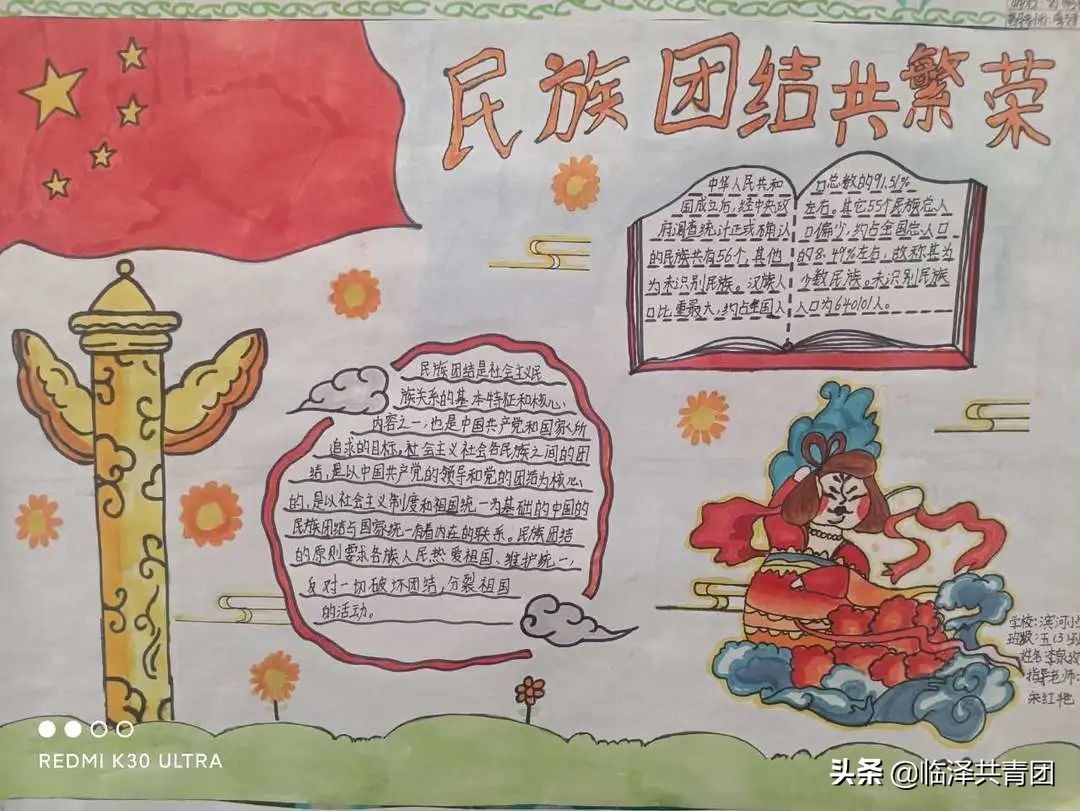 民族团结共繁荣
中华人民共和
国成立后,经中央政
府调查统计正式确认
的民族共有56个,其他
为未识别民族。汉族人
口比重最大,约占全国人
口总数的91.51%
左右。其它55个民族总人
口偏少,约占全国总人口
的8.49%左右,故称其为
少数民族。未识别民族
人口为640101人。
民族团结是社会主义民
族关系的基本特征和核心
内容之一,也是中国共产党和国家所
追求的目标,社会主义社会各民族之间的团
结,是以中国共产党的领导和党的团结为核心
的,是以社会主义制度和祖国统一为基础的中国的
民族团结与国家统一有着内在的联系。民族团结
的原则要求各族人民热爱祖国、维护统一,
反对一切破坏团结,分裂祖国
的活动。
学校:滨河小
班级:五(3)班
姓名:李
指导老师:
宋红艳
REDMI K30 ULTRA
头条 @临泽共青团